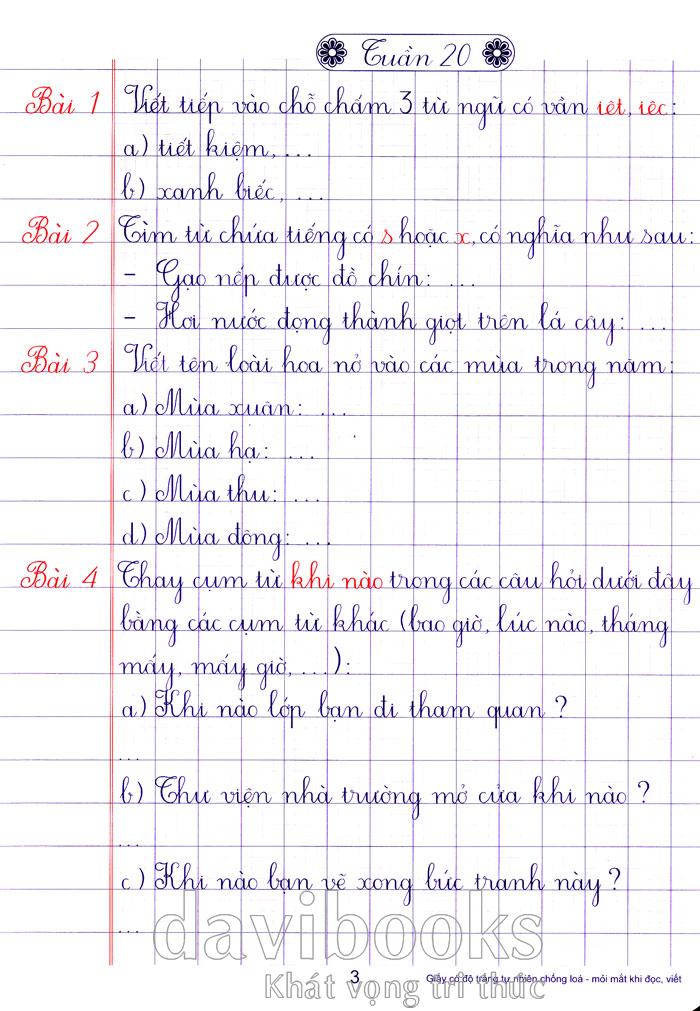 Tuần 20
Bài 1 Viết tiếp vào chỗ chấm 3 từ ngữ có vần iêt, iêc:
a) tiết kiệm, ...
b) xanh biếc, ...
Bài 2 Tìm từ chứa tiếng có s hoặc x, có nghĩa như sau:
- Gạo nếp được đồ chín: ...
- Hơi nước đọng thành giọt trên lá cây: ...
Bài 3 Viết tên loài hoa nở vào các mùa trong năm:
a) Mùa xuân: ...
b) Mùa hạ: ...
c) Mùa thu: ...
d) Mùa đông: ...
Bài 4 Thay cụm từ khi nào trong các câu hỏi dưới đây
bằng các cụm từ khác (bao giờ, lúc nào, tháng
mấy, mấy giờ, ...):
a) Khi nào lớp bạn đi tham quan ?
...
b) Thư viện nhà trường mở cửa khi nào ?
...
c) Khi nào bạn vẽ xong bức tranh này ?
...
davibooks
Khát vọng tri thức
3
Giấy có độ trắng tự nhiên chống loá - mỏi mắt khi đọc, viết